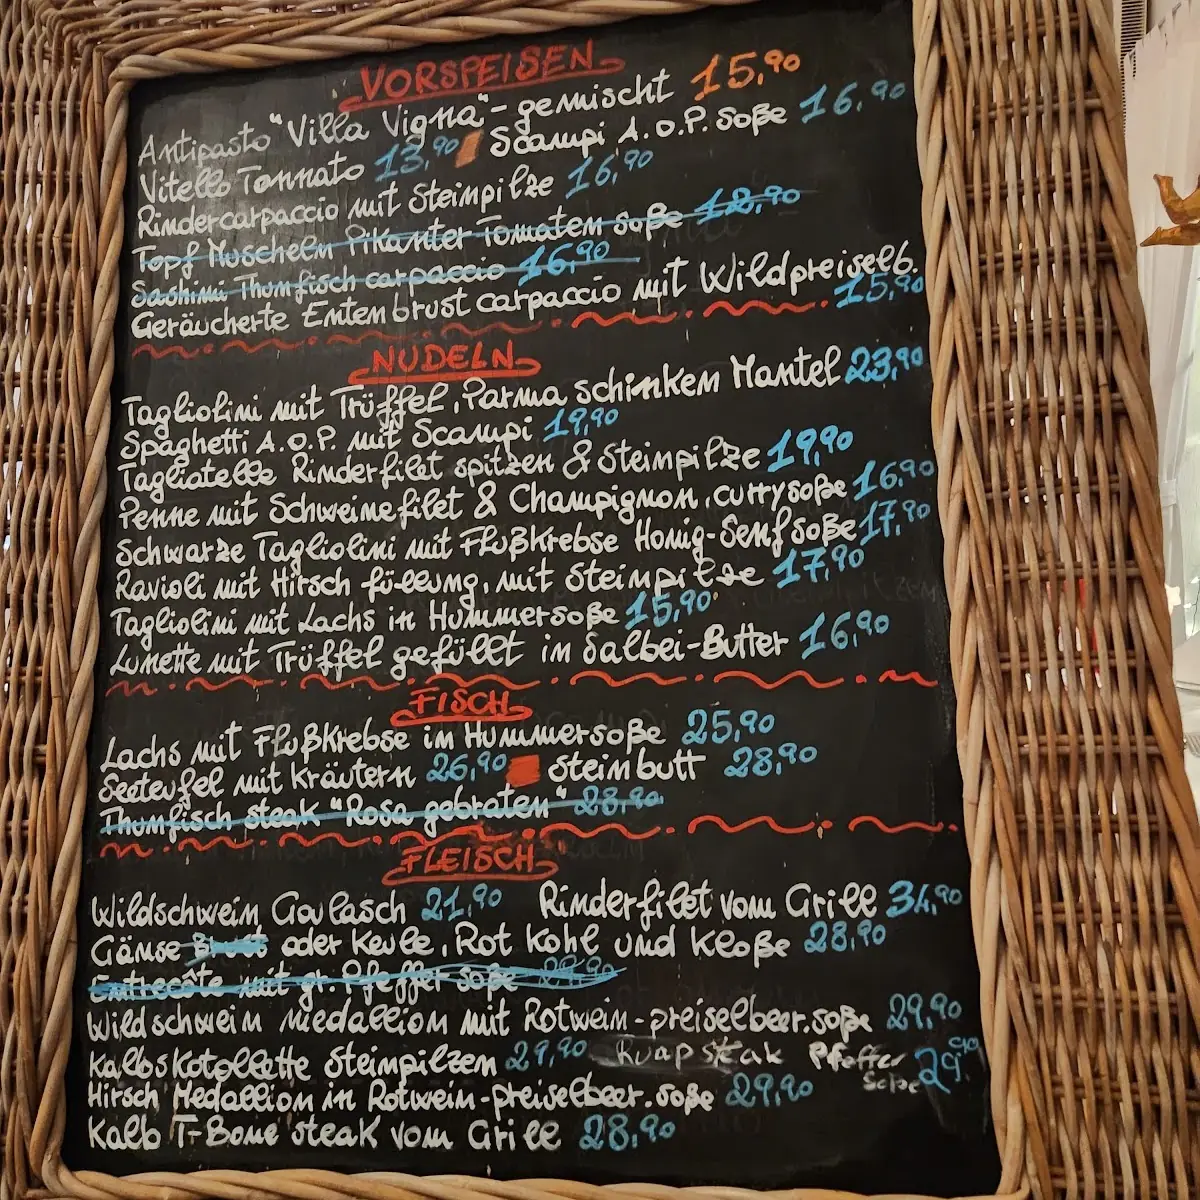 VORSPEISEN
Antipasto "Villa Vigna" - gemischt 15,90
Vitello Tonnato 13,90 Scampi A.O.P. Soße 16,90
Rindercarpaccio mit Steinpilze 16,90
Topf Muscheln Pikanter Tomaten soße 12,90
Sashimi Thunfisch carpaccio 16,90
Geräucherte Entenbrust carpaccio mit Wildpreiselb. 15,90
NUDELN
Tagliolini mit Trüffel, Parma schinken Mantel 23,90
Spaghetti A.O.P. mit Scampi 19,90
Tagliatelle Rinderfilet spitzen & Steinpilze 19,90
Penne mit Schweinefilet & Champignon, currysoße 16,90
Schwarze Tagliolini mit Flußkrebse Honig-Senfsoße 17,90
Ravioli mit Hirsch füllung, mit Steinpilze 17,90
Tagliolini mit Lachs in Hummersoße 15,90
Lunette mit Trüffel gefüllt in Salbei-Butter 16,90
FISCH
Lachs mit Flußkrebse in Hummersoße 25,90
Seeteufel mit Kräutern 26,90 Steinbutt 28,90
Thunfisch steak "Rosa gebraten" 28,90
FLEISCH
Wildschwein Goulasch 21,90 Rinderfilet vom Grill 34,90
Gänse Brust oder Keule, Rot Kohl und Kloße 28,90
Entrecôte mit gr. Pfeffer soße
Wildschwein Medallion mit Rotwein-preiselbeer.soße 29,90
Kalbskotollette Steinpilzen 29,90 Ruap steak Pfeffer Soße 29,90
Hirsch Medallion in Rotwein-preiselbeer.soße 29,90
Kalb T-Bone steak vom Grill 28,90